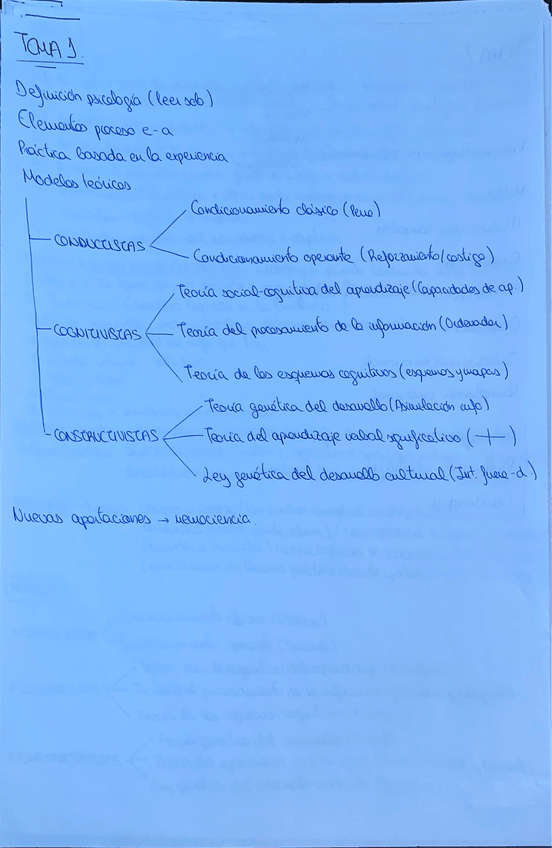 TEMA 1.
Definición psicología (leer solo)
Elementos proceso e-a
Práctica basada en la experiencia
Modelos teóricos
CONDUCTISTAS
Condicionamiento clásico (Perro)
Condicionamiento operante (Reforzamiento/castigo)
COGNITIVISTAS
Teoría social-cognitiva del aprendizaje (Capacidades de ap.)
Teoría del procesamiento de la información (Ordenador)
Teoría de los esquemas cognitivos (esquemas y mapas)
CONSTRUCTIVISTAS
Teoría genética del desarrollo (Asimilación info)
Teoría del aprendizaje verbal significativo (+)
Ley genética del desarrollo cultural (Int. fuera-d.)
Nuevas aportaciones → neurociencia.